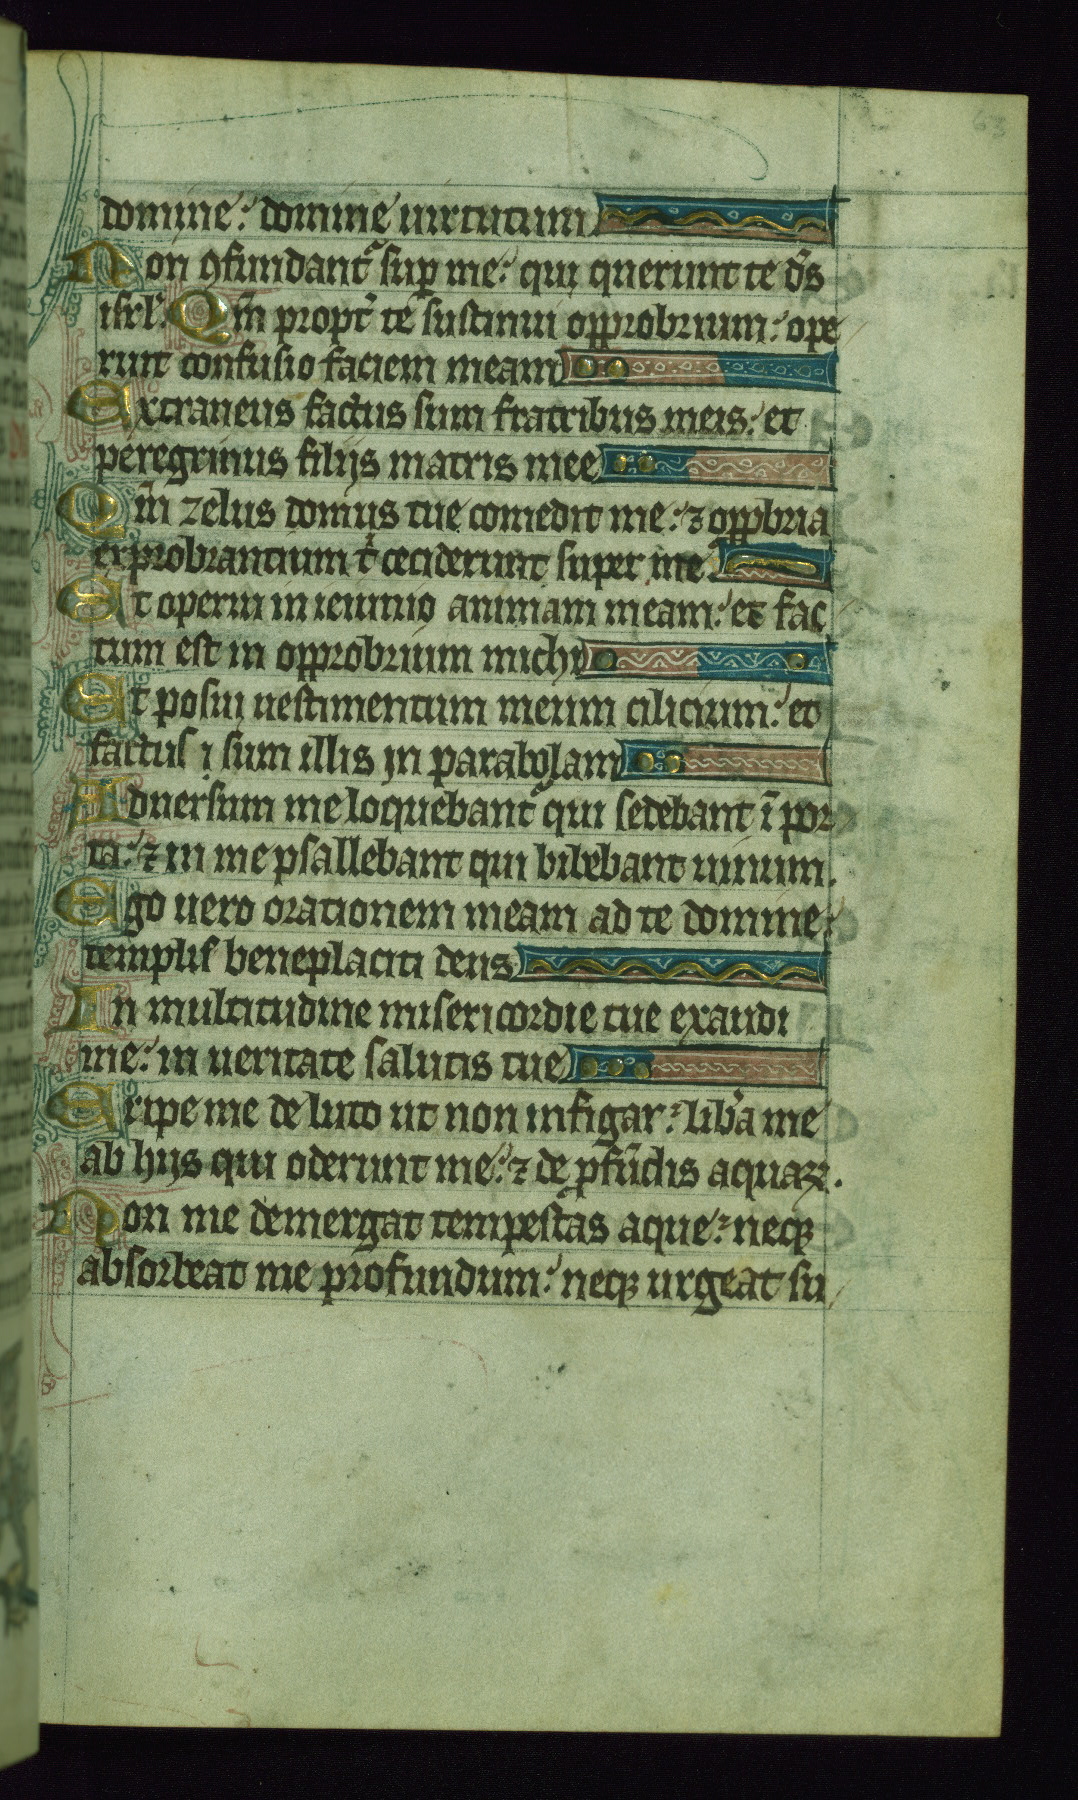 63
domine: domine uirtutum
Non ꝯfundant᷑ suꝑ me: qui querunt te ds̄
isrl̓. Qm̄ propt̓ te sustinui opprobrium: ope
runt confusio faciem meam
Extraneus factus sum fratribus meis: et
peregrinus filijs matris mee
Qm̄ zelus domus tue comedit me: ⁊ opꝓbria
exprobrantium t̓ ceciderunt super me
Et operui in ieiunio animam meam: et fac
tum est in opprobrium michi
Et posui uestimentum meum cilicium: et
factus i sum illis in parabolam
Aduersum me loquebant᷑ qui sedebant ī por
ta: ⁊ in me psallebant qui bibebant uinum.
Ego uero orationem meam ad te domine:
templis beneplaciti deus
In multitudine misericordie tue exaudi
me: in ueritate salutis tue
Eripe me de luto ut non infigar: lib̓a me
ab hijs qui oderunt me: ⁊ de ꝓfūdis aquaꝝ.
Non me demergat tempestas aque: neqꝫ
absorbeat me profundum: neqꝫ urgeat su